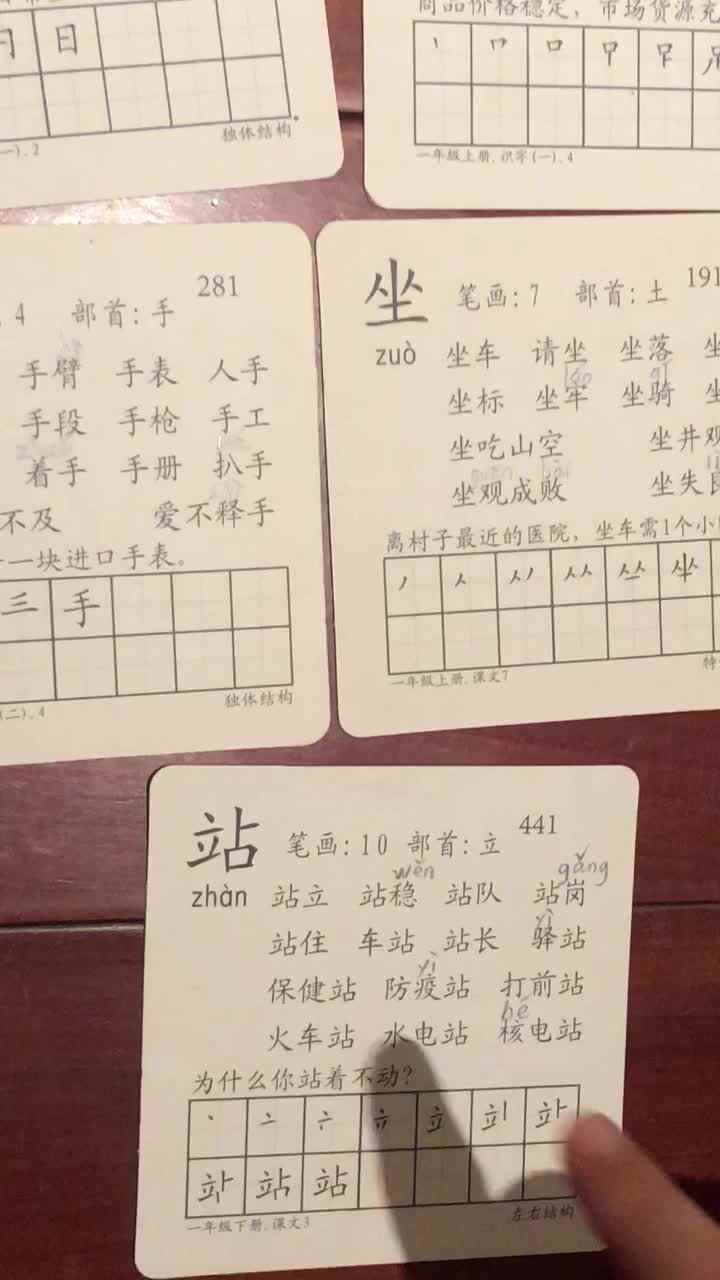 日
独体结构
一).2
商品价格稳定，市场货源充
丶 口 口
一年级上册.识字(一).4
4 部首:手 281
手臂 手表 人手
手段 手枪 手工
着手 手册 扒手
不及 爱不释手
一块进口手表。
三 手
(二).4 独体结构
坐 笔画:7 部首:土 191
zuò 坐车 请坐 坐落
坐标 坐牢 坐骑
坐吃山空 坐井观
坐观成败 坐失良
离村子最近的医院，坐车需1个小
一年级上册.课文7
站 笔画:10 部首:立 441
wěn gǎng
zhàn 站立 站稳 站队 站岗
yì
站住 车站 站长 驿站
yì
保健站 防疫站 打前站
hé
火车站 水电站 核电站
为什么你站着不动?
丶 亠 立
站 站
一年级下册.课文3 左右结构